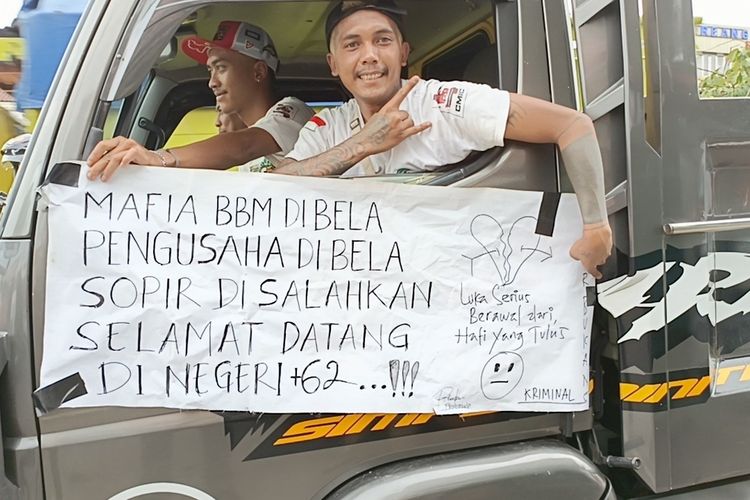 MAFIA BBM DIBELA
PENGUSAHA DIBELA
SOPIR DI SALAHKAN
SELAMAT DATANG
DI NEGERI +62 ...!!!
Luka Serius
Berawal dari,
Hati Yang Tulus
KRIMINAL
CMIC